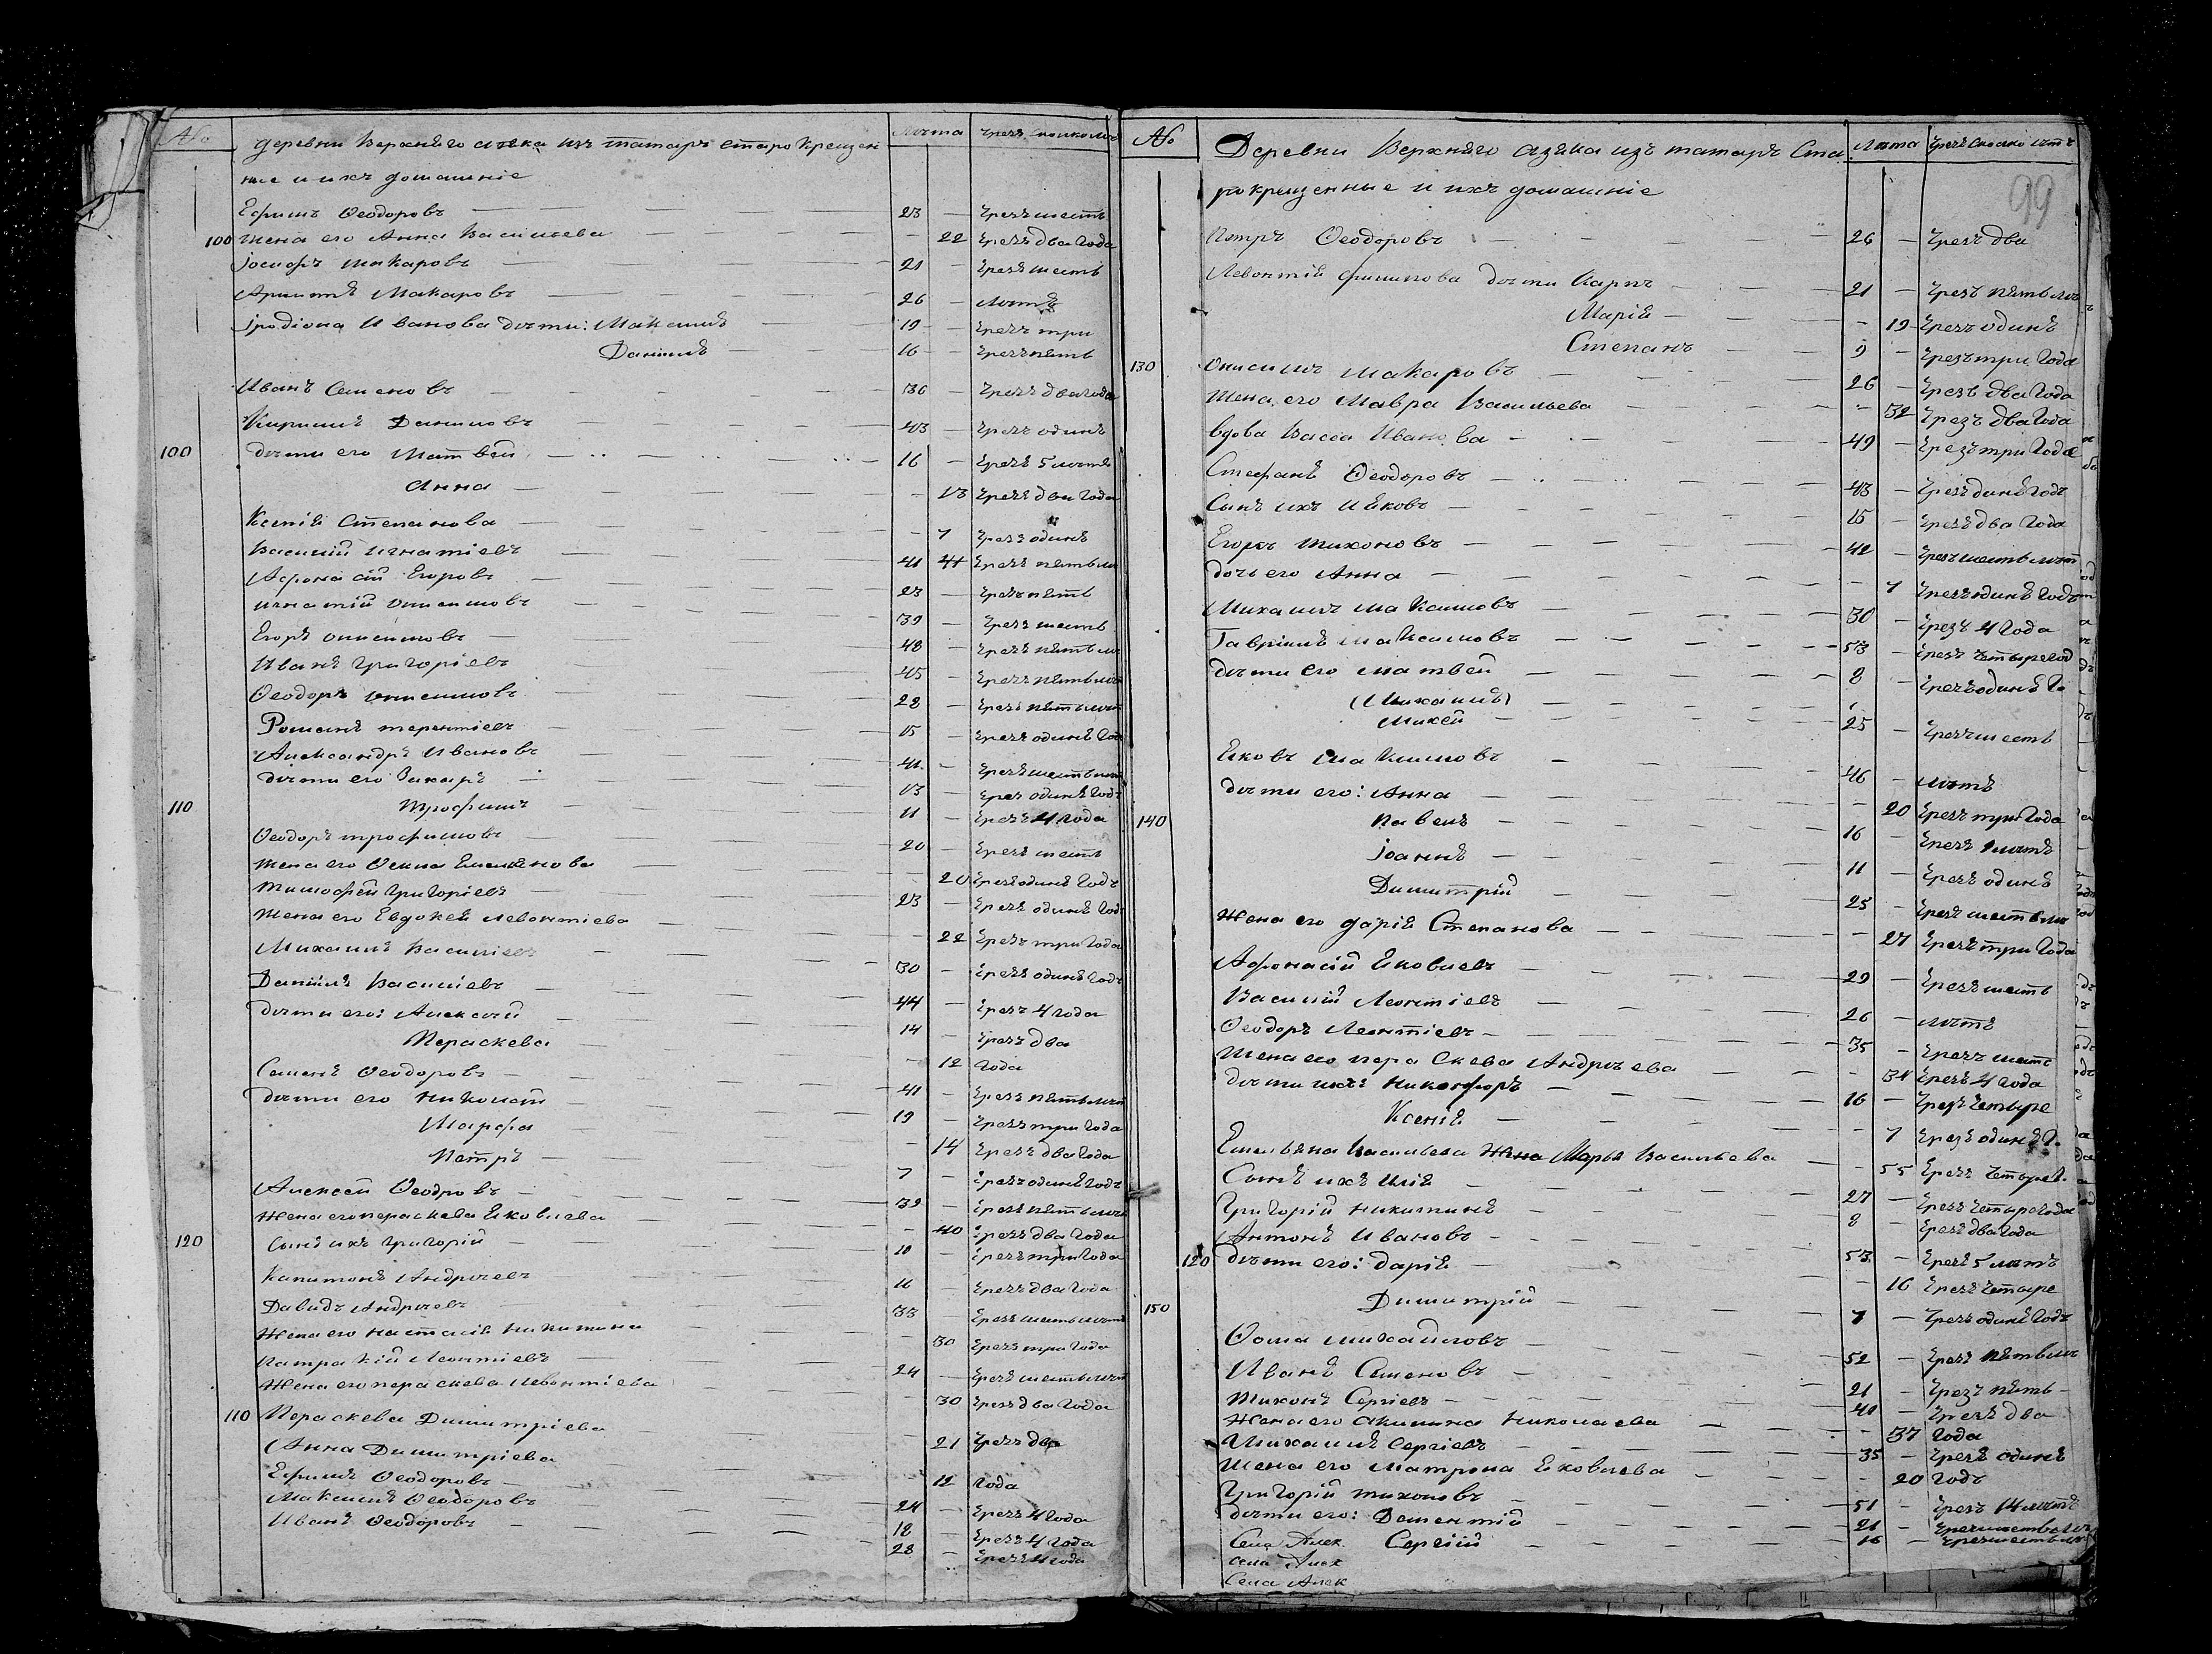 № деревни Верхняго азяка изъ татаръ старо крещен лѣта чрезъ
ные и ихъ домашніе
Ефимъ Ѳеодоровъ 23 — чрезъ шесть
100 жена его Анна Васильева — 22 чрезъ два года
Іосифъ Макаровъ 21 — чрезъ шесть
Макаровъ 26 — лѣтъ
Іродіона Иванова дѣти: Максимъ 19 — чрезъ три
Даніилъ 16 — чрезъ пять
Иванъ Семеновъ 36 — чрезъ два года
Кирилъ Даниловъ 43 — чрезъ одинъ
100 дѣти его Матвей 16 — чрезъ 5 лѣтъ
Анна — 13 чрезъ два года
Ксенія Степанова — 7 чрезъ одинъ
Василій Игнатіевъ 41 чрезъ пять лѣ
Афонасій Егоровъ 23 — чрезъ пять
Игнатій Онисимовъ 39 — чрезъ шесть
Егоръ Онисимовъ 48 — чрезъ пять лѣ
Иванъ Григоріевъ 45 — чрезъ пять лѣт
Ѳеодоръ Онисимовъ 28 — чрезъ пять лѣт
Романъ терентіевъ 15 — чрезъ одинъ год
Александръ Ивановъ 41 — чрезъ шесть лѣт
дѣти его Захаръ 13 — чрез одинъ годъ
110 Трофимъ 11 — чрезъ 4 года
Ѳеодоръ трофимовъ 20 — чрезъ шесть
жена его Ѳекла Емелянова — 20 чрезъ одинъ годъ
Тимофей Григоріевъ 23 — чрезъ одинъ год
Жена его Евдокея Левонтіева — 22 чрезъ три года
Михаилъ Василіевъ 30 — чрезъ одинъ годъ
Даніилъ Василіевъ 44 — чрезъ 4 года
дѣти его: Алексей 14 — чрезъ два
Пераскева — 12 года
Семенъ Ѳеодоровъ 41 — чрезъ пять лѣт
дѣти его Николай 19 — чрезъ три года
Марфа — 14 чрезъ два года
Петръ 7 — чрезъ одинъ годъ
Алексей Ѳеодровъ 39 — чрезъ пять лѣт
Жена его пераскева Яковлева — 40 чрезъ два года
120 сынъ ихъ григорій 10 — чрезъ три года
Капитонъ Андрѣевъ 16 — чрезъ два года
Давидъ Андрѣевъ 33 — чрезъ шесть лѣтъ
Жена его Наталія Никитина — 30 чрезъ три года
Патракій Леонтіевъ 24 — чрезъ шесть лѣт
Жена его пераскева Левонтіева — 30 чрезъ два года
110 Пераскева Димитріева — 21 чрезъ два
Анна Димитріева — 12 года
Ефимъ Ѳеодоровъ 24 — чрезъ 4 года
Максимъ Ѳеодоровъ 18 — чрезъ 4 года
Иванъ Ѳеодоровъ 28 — чрезъ 4 года
№ Деревни Верхняго азяка изъ татаръ Ста лѣта чрезъ сколко лѣтъ
рокрещенные и ихъ домашніе 99
Петръ Ѳеодоровъ 26 — чрезъ два
Левонтія филипова дѣти Карпъ 21 — чрезъ пять лѣт
Марія — 19 чрезъ одинъ
Степанъ 9 — чрезъ три года
130 Онисимъ Макаровъ 26 — чрезъ два года
Жена его Мавра Васильева — 32 чрезъ два года
вдова Васса Иванова 49 чрезъ три года
Стефанъ Ѳеодоровъ 43 — чрезъ динъ годъ
Сынъ ихъ Яковъ 15 — чрезъ два года
Егоръ тихоновъ 42 — чрезъ шесть лѣт
дочь его Анна — 7 чрезъ одинъ годъ
Михаилъ Максимовъ 30 — чрезъ 4 года
Гавріилъ Максимовъ 53 — чрезъ четыре год
дѣти его матвей 8 — чрезъ одинъ го
(Михаилъ)
Микей 25 — чрезъ шесть
Яковъ Максимовъ 46 — лѣтъ
дѣти его: Анна — 20 чрезъ три года
140 Павелъ 16 — чрезъ лѣтъ
Іоаннъ 11 — чрезъ одинъ
Димитрій 25 — чрезъ шесть лѣ
Жена его дарія Степанова — 27 чрезъ три года
Афонасій Яковлевъ 29 — чрезъ шесть
Василій Леонтіевъ 26 — лѣтъ
Ѳеодоръ Леонтіевъ 35 — чрезъ шесть
Жена его пераскева Андрѣева — 34 чрезъ 4 года
дѣти ихъ: никифоръ 16 — чрезъ четыре
Ксенія — 7 чрезъ одинъ г.
Емельяна Васильева Жена Марья Васильева — 55 чрезъ четыре г.
Сынъ ихъ Илія 27 — чрезъ четыре года
Григорій Никитинъ 8 — чрезъ два года
Антонъ Ивановъ 53 — чрезъ 5 лѣтъ
120 дѣти его: дарія — 16 чрезъ четыре
150 Димитрій 7 — чрезъ одинъ годъ
Ѳома михайловъ 52 — чрезъ пять лѣт
Иванъ Семеновъ 21 — чрезъ пять
Тихонъ Сергіевъ 40 — чрезъ два
Жена его акилина Николаева — 37 года
Михаилъ Сергіевъ 35 — чрезъ одинъ
Жена его Матрона Яковлева — 20 годъ
Григорій тихоновъ 51 — чрезъ 14 лѣтъ
дѣти его: Доментій 21 — чрезъ шесть лѣт
Села Алек. Сергій 16 — чрезъ шесть лѣт
села Алек
Села Алек